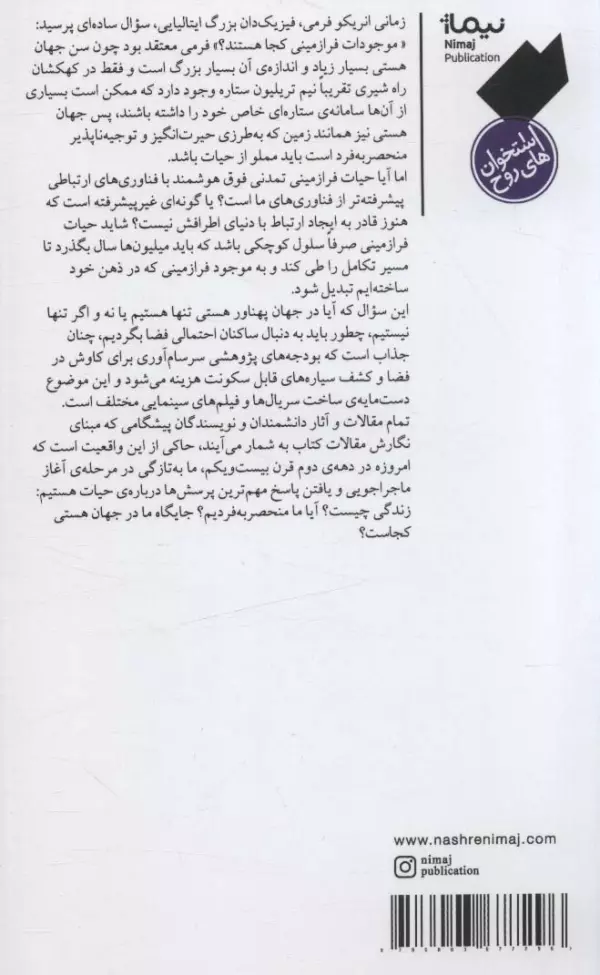 نیماژ
Nimaj
Publication
استخوان
های روح
زمانی انریکو فرمی، فیزیک‌دان بزرگ ایتالیایی، سؤال ساده‌ای پرسید:
«موجودات فرازمینی کجا هستند؟» فرمی معتقد بود چون سن جهان
هستی بسیار زیاد و اندازه‌ی آن بسیار بزرگ است و فقط در کهکشان
راه شیری تقریباً نیم تریلیون ستاره وجود دارد که ممکن است بسیاری
از آن‌ها سامانه‌ی ستاره‌ای خاص خود را داشته باشند، پس جهان
هستی نیز همانند زمین که به‌طرزی حیرت‌انگیز و توجیه‌ناپذیر
منحصربه‌فرد است باید مملو از حیات باشد.
اما آیا حیات فرازمینی تمدنی فوق هوشمند با فناوری‌های ارتباطی
پیشرفته‌تر از فناوری‌های ما است؟ یا گونه‌ای غیرپیشرفته است که
هنوز قادر به ایجاد ارتباط با دنیای اطرافش نیست؟ شاید حیات
فرازمینی صرفاً سلول کوچکی باشد که باید میلیون‌ها سال بگذرد تا
مسیر تکامل را طی کند و به موجود فرازمینی که در ذهن خود
ساخته‌ایم تبدیل شود.
این سؤال که آیا در جهان پهناور هستی تنها هستیم یا نه و اگر تنها
نیستیم، چطور باید به دنبال ساکنان احتمالی فضا بگردیم، چنان
جذاب است که بودجه‌های پژوهشی سرسام‌آوری برای کاوش در
فضا و کشف سیاره‌های قابل سکونت هزینه می‌شود و این موضوع
دست‌مایه‌ی ساخت سریال‌ها و فیلم‌های سینمایی مختلف است.
تمام مقالات و آثار دانشمندان و نویسندگان پیشگامی که مبنای
نگارش مقالات کتاب به شمار می‌آیند، حاکی از این واقعیت است که
امروزه در دهه‌ی دوم قرن بیست‌ویکم، ما به‌تازگی در مرحله‌ی آغاز
ماجراجویی و یافتن پاسخ مهم‌ترین پرسش‌ها درباره‌ی حیات هستیم:
زندگی چیست؟ آیا ما منحصربه‌فردیم؟ جایگاه ما در جهان هستی
کجاست؟
www.nashrenimaj.com
nimaj
publication